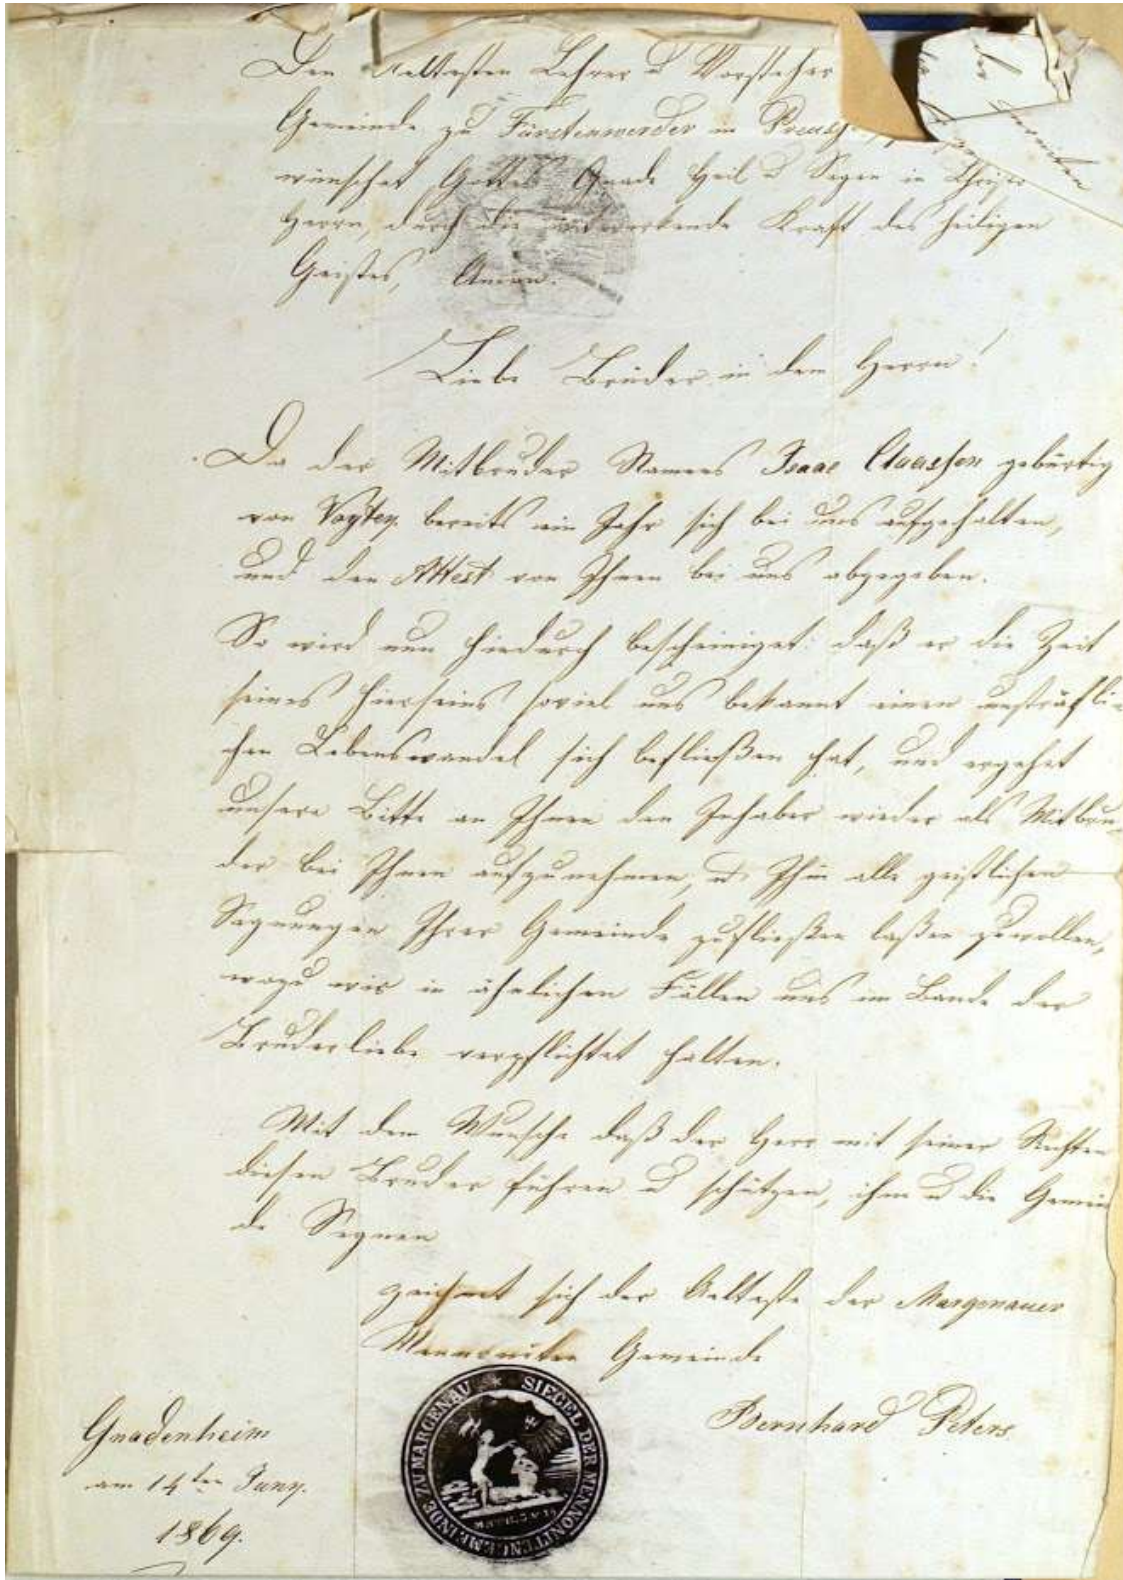 Den Aeltesten Lehrer u Vorsteher
Gemeinde zu Fürstenwerder in Preuß
wünschet Gottes Gnade Heil u Segen in Christo
Herrn, durch die mitwirkende Kraft des heiligen
Geistes, Amen.
Liebe Brüder in dem Herrn!
Da der Mitbruder Namens Isaac Claassen gebürtig
von Vogtey bereits ein Jahr sich bei uns aufgehalten,
und den Attest von Ihnen bei uns abgegeben.
So wird nun hiedurch bescheiniget: daß er die Zeit
seines Hierseins soviel uns bekannt einen unsträfli-
chen Lebenswandel sich befließen hat, und ergehet
unsere Bitte an Ihnen den Inhaber wieder als Mitbru-
der bei Ihnen aufzunehmen, u Ihm alle geistlichen
Segnungen Ihrer Gemeinde zufließen laßen zu wollen,
wozu wir in ähnlichen Fällen uns im Bande der
Bruderliebe verpflichtet halten.
Mit dem Wunsche daß der Herr mit seiner Rechten
diesen Bruder führen u schützen, ihm u die Gemein
de Segnen
zeichnet sich der Aelteste der Margenauer
Mennoniten Gemeinde
Bernhard Peters
Gnadenheim
am 14ten Juny.
1869.
SIEGEL DER MENNONITENGEMEINDE ZU MARGENAU